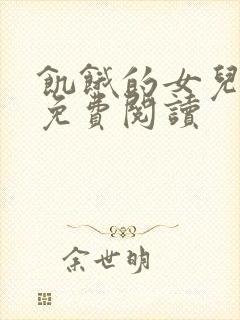 飢餓的女兒
免費閱讀
余世明